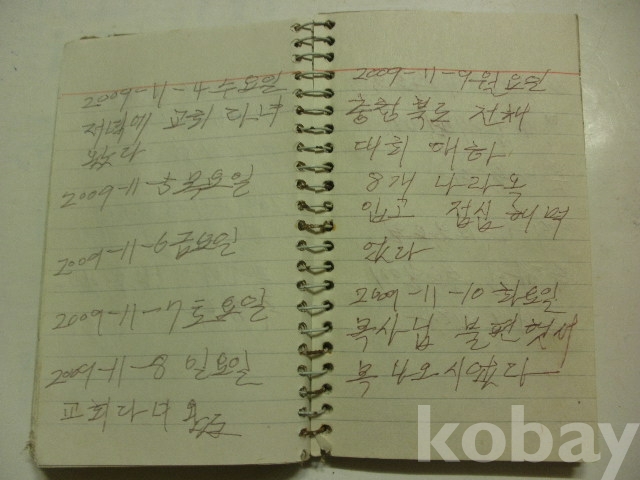 2009-11-4 수요일
저녁에 교회 다녀
왔다
2009-11-5 목요일
2009-11-6 금요일
2009-11-7 토요일
2009-11-8 일요일
교회다녀 옴
2009-11-9 월요일
충청북도 전체
대회
8개 나라 옷
입고 점심 해 먹
었다
2009-11-10 화요일
목사님 불편햇서
못 나오시였다
kobay